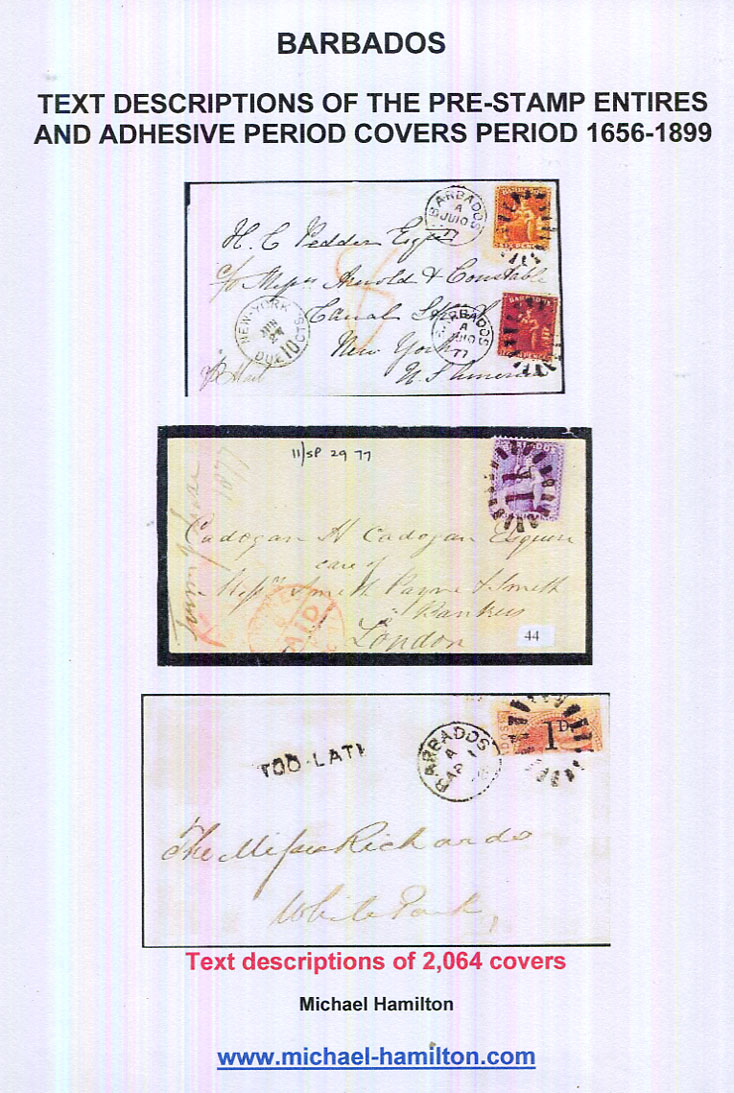 BARBADOS
TEXT DESCRIPTIONS OF THE PRE-STAMP ENTIRES
AND ADHESIVE PERIOD COVERS PERIOD 1656-1899
BARBADOS
A
JU10
77
BARBADOS
H. C Pedder Esqr
c/o Messrs Arnold & Constable
Canal Street
New York
U. S America
NEW-YORK
JUN
24
DUE 10 CTS
BARBADOS
A
JU10
77
BARBADOS
11/SP 29 77
Cadogan H Cadogan Esquire
care of
Messrs Smith Payne & Smith
Bankers
London
PAID
11
44
TOO-LATE
BARBADOS
A
AP 1
1D
The Misses Richards
White Park,
Text descriptions of 2,064 covers
Michael Hamilton
www.michael-hamilton.com